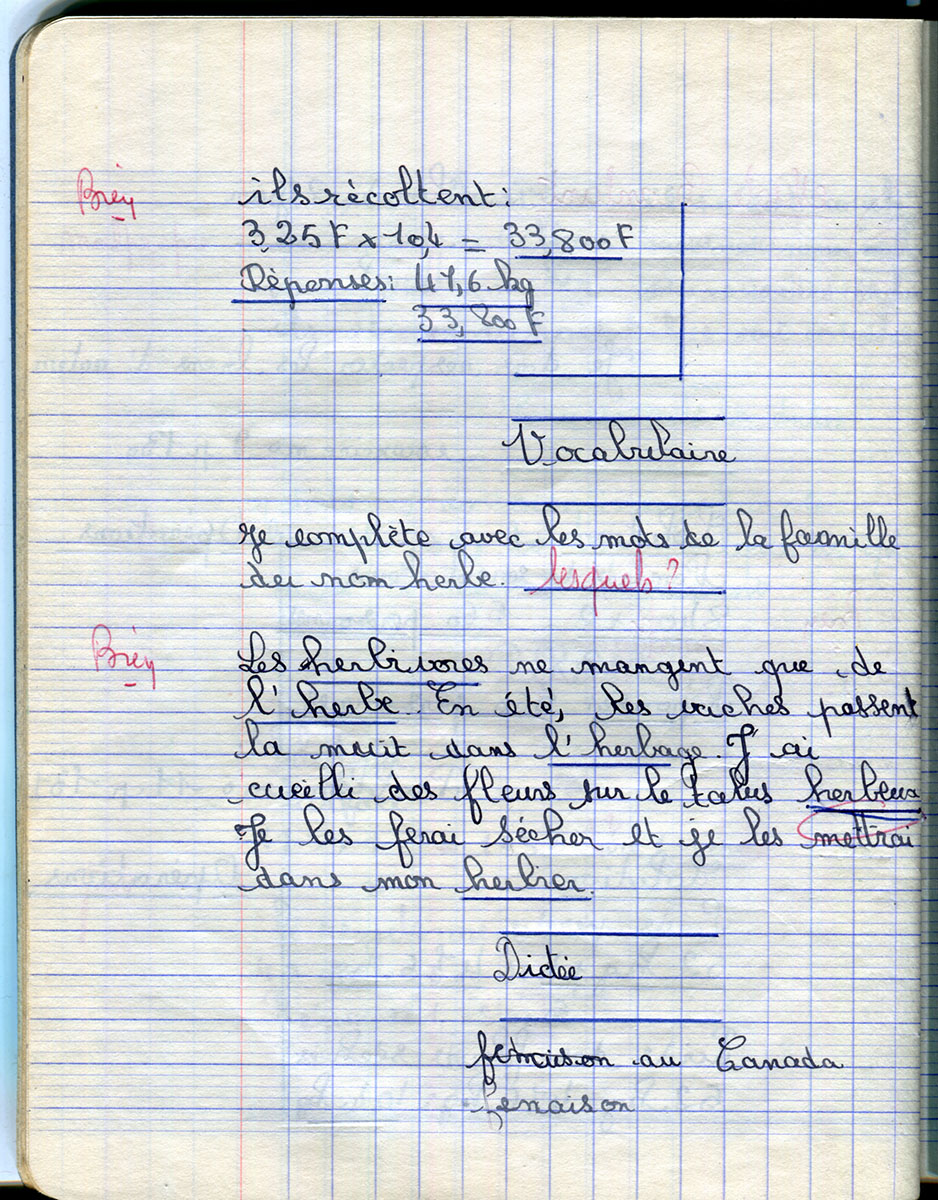 Bien
ils récoltent:
3,25 F x 10,4 = 33,800 F
Réponses: 47,6 kg
33,800 F
Vocabulaire
Je complète avec les mots de la famille
du nom herbe. lesquels?
Bien
Les herbivores ne mangent que de
l'herbe. En été, les vaches passent
la nuit dans l'herbage. J'ai
cueilli des fleurs sur le talus herbeux
Je les ferai sécher et je les mettrai
dans mon herbier.
Dictée
au Canada
Fenaison